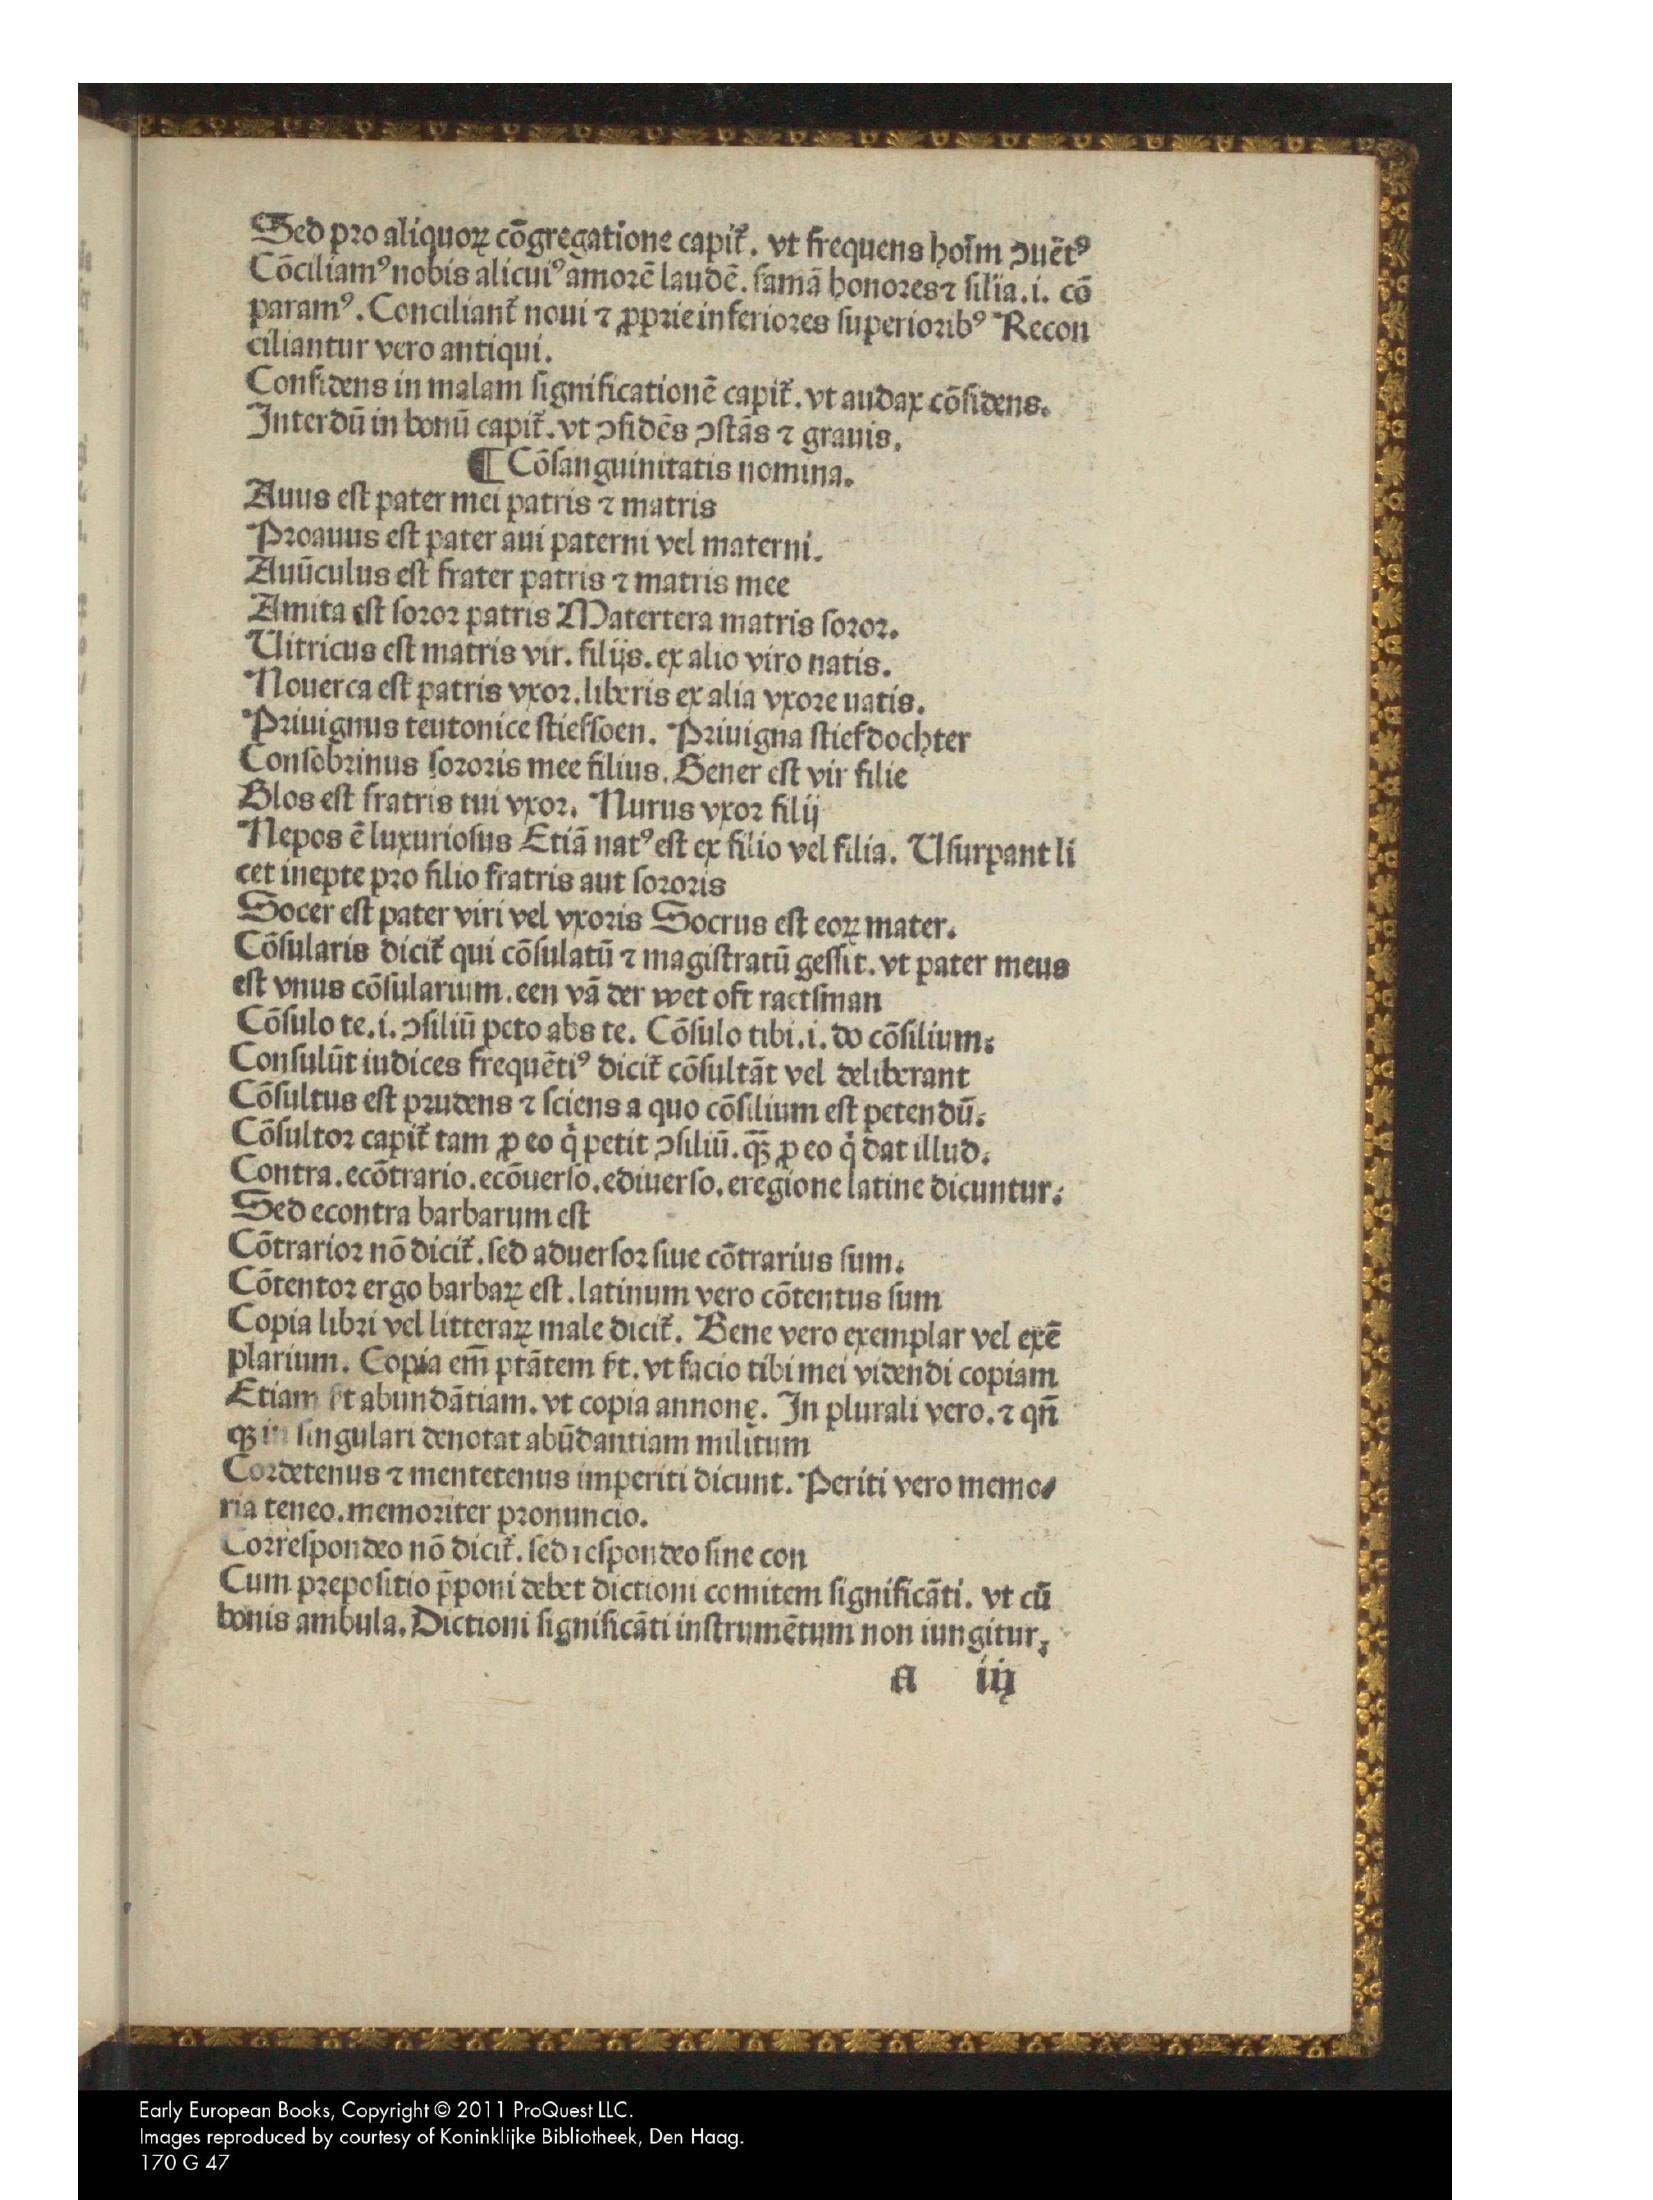 Sed pro aliquoꝝ cōgregatione capit᷑. vt frequens hoīm ꝯuētꝰ
Cōciliamꝰ nobis alicuiꝰ amorē laudē. famā honores ⁊ silia. i. cō
paramꝰ. Conciliant᷑ noui ⁊ ꝓprie inferiores superioribꝰ Recon
ciliantur vero antiqui.
Confidens in malam significationē capit᷑. vt audax cōfidens.
Interdū in bonū capit᷑. vt ꝯfidēs ꝯstās ⁊ grauis.
¶ Cōsanguinitatis nomina.
Auus est pater mei patris ⁊ matris
Proauus est pater aui paterni vel materni.
Auūculus est frater patris ⁊ matris mee
Amita est soror patris Matertera matris soror.
Uitricus est matris vir. filijs. ex alio viro natis.
Nouerca est patris vxor. liberis ex alia vxore uatis.
Priuignus teutonice stiefsoen. Priuigna stiefdochter
Consobrinus sororis mee filius. Gener est vir filie
Glos est fratris tui vxor. Nurus vxor filij
Nepos ē luxuriosus Etiā natꝰ est ex filio vel filia. Usurpant li
cet inepte pro filio fratris aut sororis
Socer est pater viri vel vxoris Socrus est eoꝝ mater.
Cōsularis dicit᷑ qui cōsulatū ⁊ magistratū gessit. vt pater meus
est vnus cōsularium. een vā der wet oft ractsman
Cōsulo te. i. ꝯsiliū peto abs te. Cōsulo tibi. i. do cōsilium.
Consulūt iudices frequētiꝰ dicit᷑ cōsultāt vel deliberant
Cōsultus est prudens ⁊ sciens a quo cōsilium est petendū.
Cōsultor capit᷑ tam ꝓ eo q̇ petit ꝯsiliū. q̄ꝫ ꝓ eo q̇ dat illud.
Contra. ecōtrario. ecōuerso. ediuerso. eregione latine dicuntur.
Sed econtra barbarum est
Cōtrarior nō dicit᷑. sed aduersor siue cōtrarius sum.
Cōtentor ergo barbaꝝ est. latinum vero cōtentus sum
Copia libri vel litteraꝝ male dicit᷑. Bene vero exemplar vel exē
plarium. Copia em̄ ptātem ht. vt facio tibi mei videndi copiam
Etiam ht abundātiam. vt copia annonę. In plurali vero. ⁊ qn̄
qꝫ in singulari denotat abūdantiam militum
Cordetenus ⁊ mentetenus imperiti dicunt. Periti vero memo⸗
ria teneo. memoriter pronuncio.
Correspondeo nō dicit᷑. sed respondeo sine con
Cum prepositio p̄poni debet dictioni comitem significāti. vt cū
bonis ambula. Dictioni significāti instrumētum non iungitur,
a iij
Early European Books, Copyright © 2011 ProQuest LLC.
Images reproduced by courtesy of Koninklijke Bibliotheek, Den Haag.
170 G 47